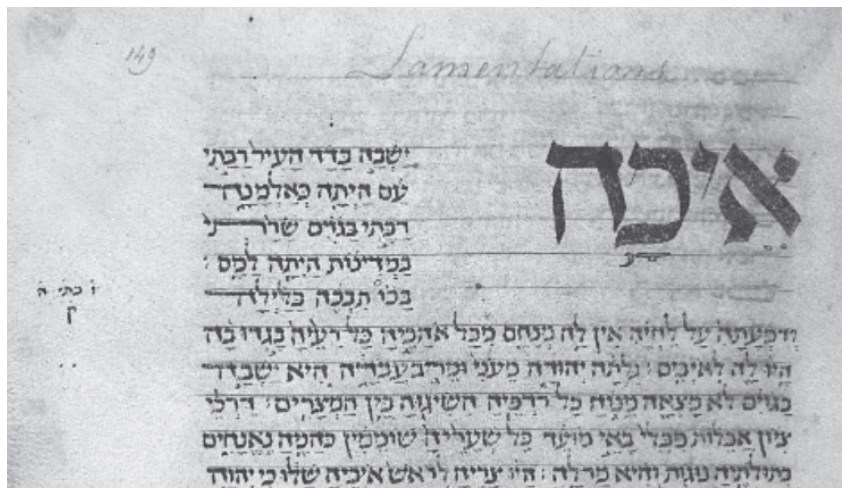 149
Lamentations
איכה
ישבה בדד העיר רבתי
עם היתה כאלמנה
רבתי בגוים שרתי
במדינות היתה למס :
בכו תבכה בלילה
ודמעתה על לחיה אין לה מנחם מכל אהביה כל רעיה בגדו בה
היו לה לאיבים : גלתה יהודה מעני ומרב עבדה היא ישבה
בגוים לא מצאה מנוח כל רדפיה השיגוה בין המצרים : דרכי
ציון אבלות מבלי באי מועד כל שעריה שוממין כהניה נאנחים
בתולתיה נוגות והיא מר לה : היו צריה לראש איביה שלו כי יהוה